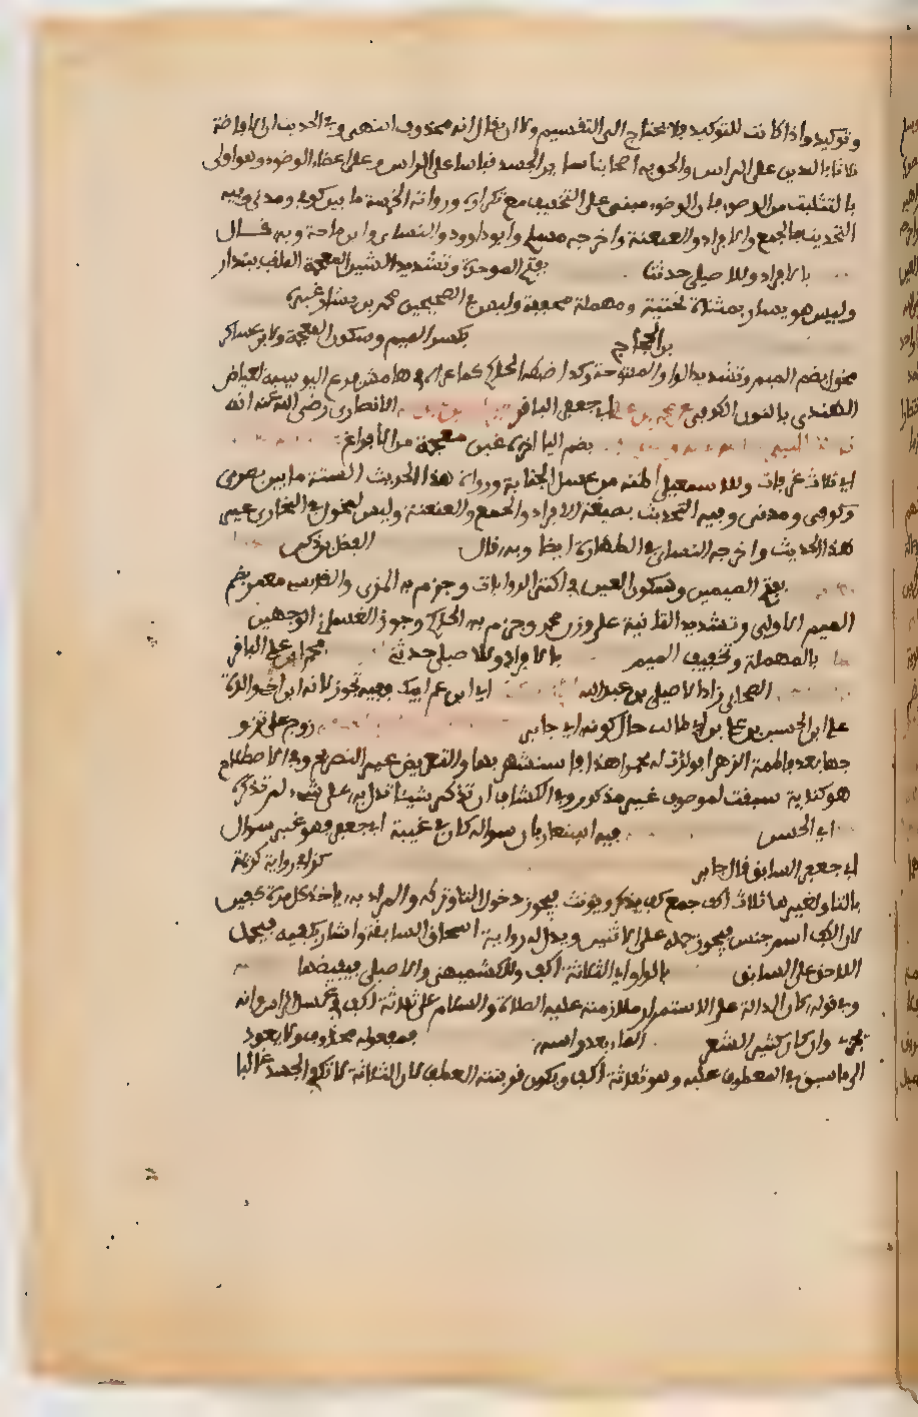 وتوكيد واذا كانت للتوكيد فلا تحتاج الى التقسيم ولا ان يقال انه محذوف انتهى وفي الحديث ان الافاضة
ثلاثا باليدين على الراس والحق به اصحابنا سائر الجسد قياسا على الراس وعلى اعضاء الوضوء وهو اولى
بالتثليث من الوضوء فان الوضوء مبني على التخفيف مع تكراره ورواته الخمسة ما بين كوفي ومدني وفيه
التحديث بالجمع والافراد والعنعنة واخرجه مسلم وابو داوود والنساءي وابن ماجة وبه قال
بالافراد وللاصيلي حدثنا بفتح الموحدة وتشديد الشين المعجمة الملقب ببندار
وليس هو يسار بمثناة تحتية ومهملة مخففة وليس في الصحيحين محمد بن بشار غيره
بن الحجاج بكسر الميم وسكون المعجمة ولابن عساكر
مخول بضم الميم وتشديد الواو المفتوحة وكذا ضبطه الحاكم كما عزاه في هامش فرع اليونينية لعياض
النهدي بالنون الكوفي محمد بن علي ابي جعفر الباقر الانصاري رضي الله عنه انه
بضم الياء اخره غين معجمة من الافراغ
اي ثلاث غرفات وللاسمعيلي اظنه من غسل الجنابة ورواة هذا الحديث الستة ما بين بصري
وكوفي ومدني وفيه التحديث بصيغة الافراد والجمع والعنعنة وليس لمخول في البخاري غير
هذا الحديث واخرجه النساءي في الطهارة ايضا وبه قال الفضل بن دكين
بفتح الميمين وسكون العين في اكثر الروايات وجزم به المزي والقابسي معمر بضم
الميم الاولى وتشديد الثانية على وزن محمد وجزم به الحاكم وجوز الغساني الوجهين
بالمهملة وتخفيف الميم بالافراد وللاصيلي حدثنا محمد ابن علي الباقر
الصحابي زاد الاصيلي بن عبد الله اي ابن عم ابيك وفيه تجوز لانه ابن اخي والده
علي ابن الحسين بن علي بن ابي طالب حال كونه اي جابر زوج علي تزو
جها بعد فاطمة الزهرا فولدت له محمدا هذا فاشتهر بها والتعريض غير التصريح وفي الاصطلاح
هو كناية سيقت لموصوف غير مذكور وفي الكشاف ان تذكر شيئا تدل به على شيء لم تذكره
ابي الحسن فيه اشعار بان سواله كان في غيبة ابي جعفر وهو غير سوال
ابي جعفر السابق قال جابر كذا في رواية كريمة
بالتاء ولغيرها ثلاث اكف جمع كف يذكر ويونث فيجوز دخول التاء وتركه والمراد به ياخذ كل مرة كفين
لان الكف اسم جنس فيجوز حمله على الاثنين ويدل له رواية اسحاق السابقة واشار بكفيه فيحمل
اللاحق على السابق بالواو اي الثلاثة اكف وللكشميهني والاصيلي فيفيضها
وفي قوله كان الدالة على الاستمرار ملازمته عليه الصلاة والسلام على ثلاثة اكف في غسل الراس وانه
يجزي وان كان كثير الشعر الماء بعد راسه ومفعوله محذوف ولا يعود
الى ما سبق في المعطوف عليه وهو ثلاثة اكف ويكون قرينته العطف لان الثلاثة لا تكفي الجسد غالبا